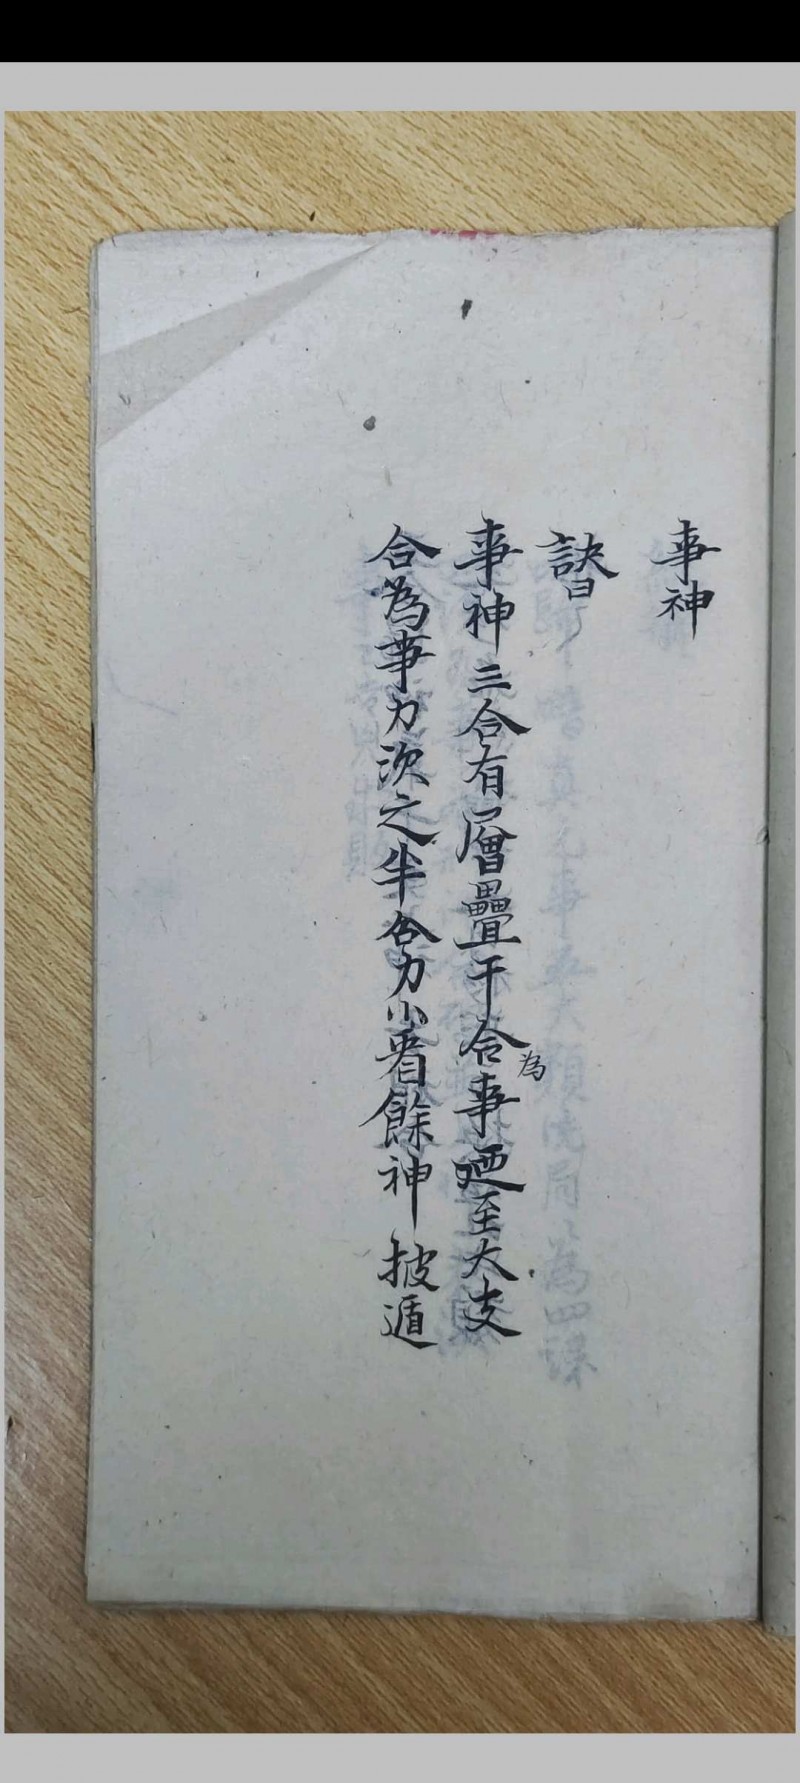 事神
訣曰
事神三合有層疊干合為事廼至大支
合為事力次之半合力小看餘神披遁